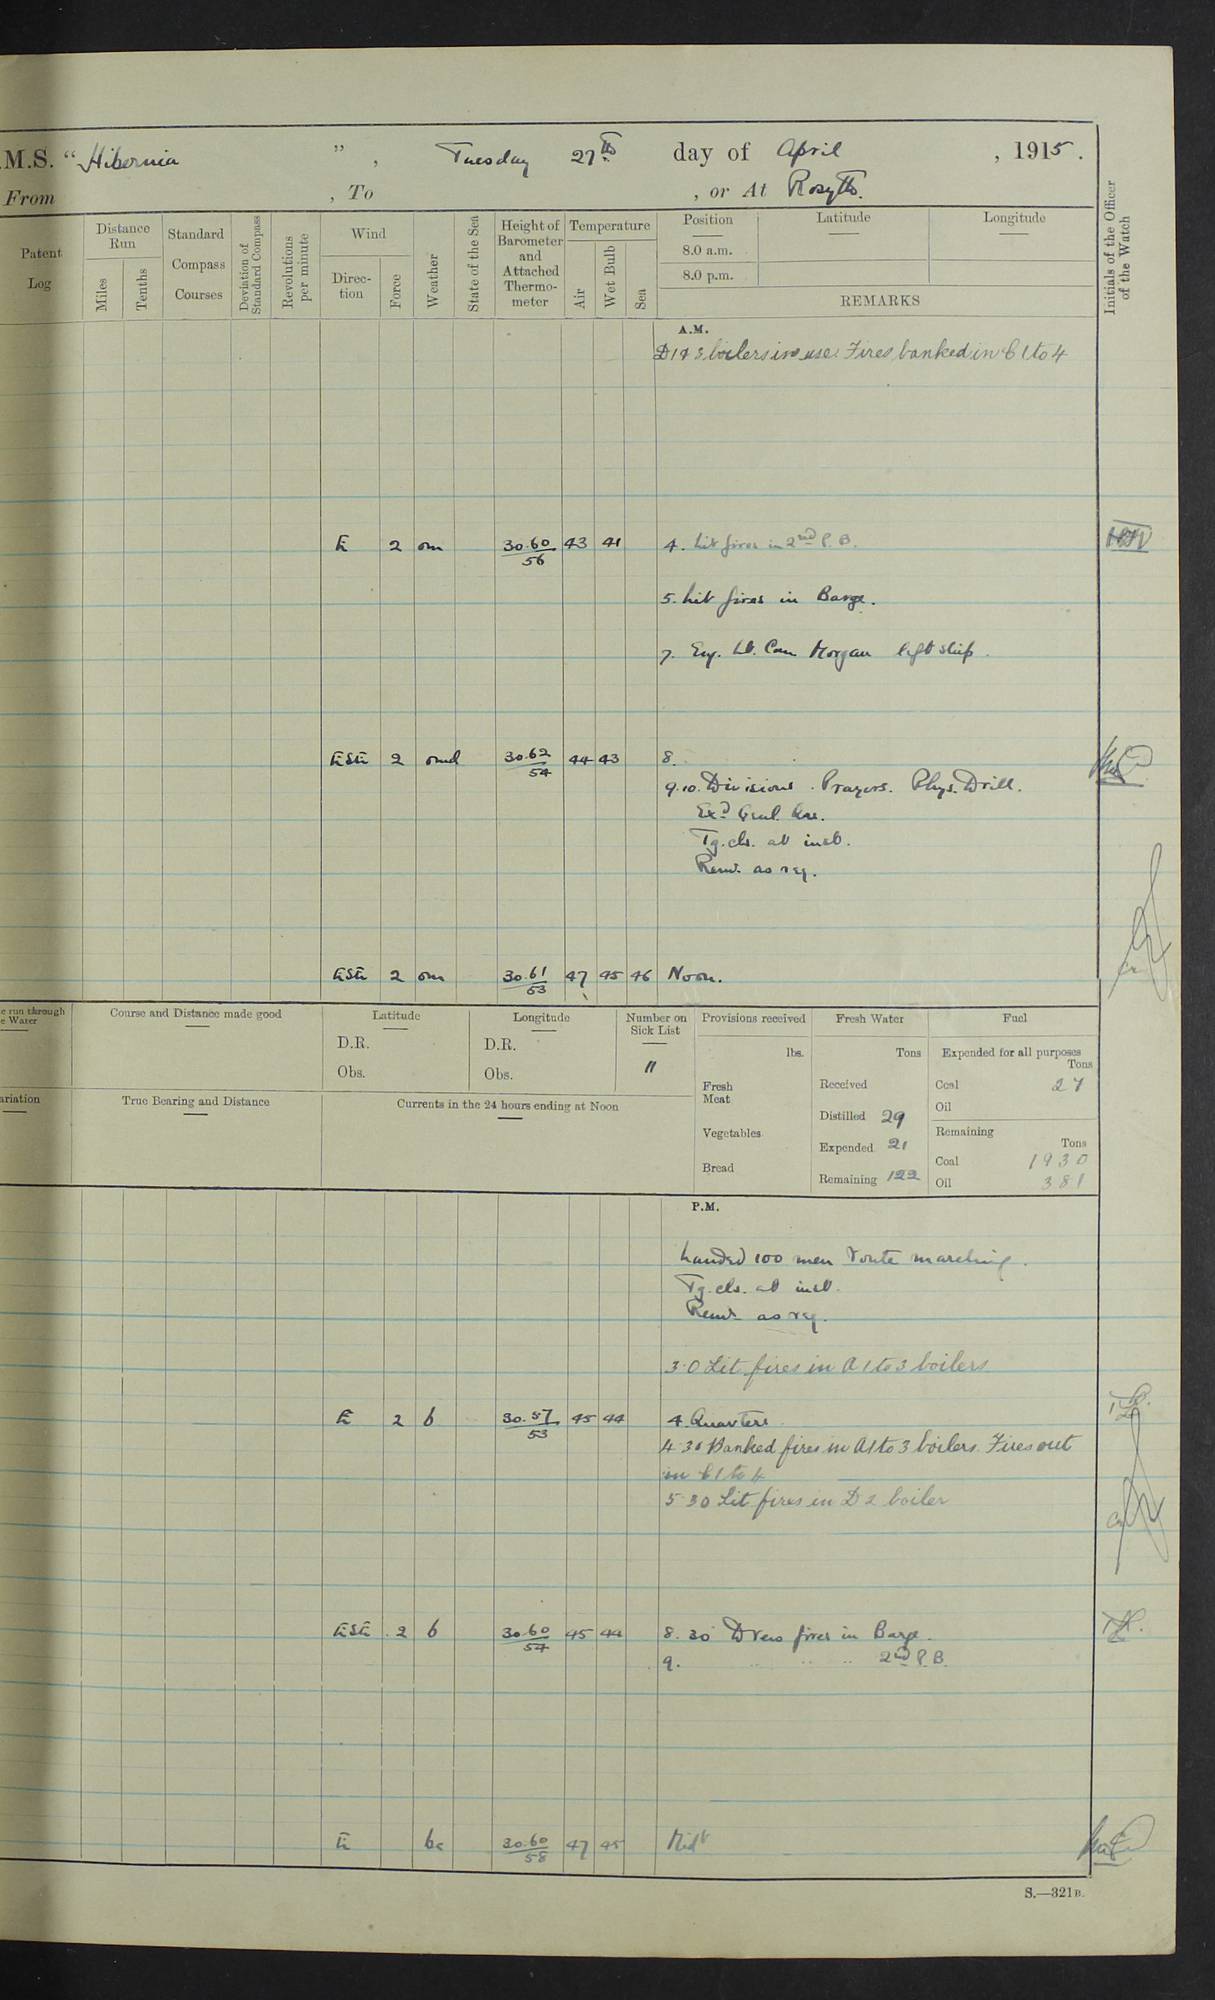 .M.S. " Hibernia ", Tuesday 27th day of April, 1915.
From , To , or At Rosyth.
Patent Log
Distance Run
Miles
Tenths
Standard Compass Courses
Deviation of Standard Compass
Revolutions per minute
Wind
Direc-tion
Force
Weather
State of the Sea
Height of Barometer and Attached Thermo-meter
Temperature
Air
Wet Bulb
Sea
Position
8.0 a.m.
8.0 p.m.
Latitude
Longitude
REMARKS
Initials of the Officer of the Watch
A.M.
D 1 & 3 boilers in use. Fires banked in C 1 to 4
E 2 om 30.60/56 43 41 4. Lit fires in 2nd P.B.
5. Lit fires in Barge.
7. Eng. Lt. Com Morgan left ship.
ESE 2 omd 30.62/54 44 43 8.
9.10. Divisions. Prayers. Phys. Drill.
Exd Genl. Qrs.
Tg. cls. at inst.
Remr. as req.
ESE 2 om 30.61/53 47 45 46 Noon.
e run through
e Water
Course and Distance made good
Latitude
D.R.
Obs.
Longitude
D.R.
Obs.
Number on Sick List
11
Provisions received
lbs.
Fresh Meat
Vegetables
Bread
Fresh Water
Tons
Received
Distilled 29
Expended 21
Remaining 122
Fuel
Expended for all purposes
Tons
Coal 27
Oil
Remaining
Tons
Coal 1930
Oil 381
ariation
True Bearing and Distance
Currents in the 24 hours ending at Noon
P.M.
Landed 100 men route marching.
Tg. cls. at inst.
Remr. as req.
3.0 Lit fires in A 1 to 3 boilers
E 2 b 30.57/53 45 44 4 Quarters
4.30 Banked fires in A 1 to 3 boilers. Fires out
in C 1 to 4
5.30 Lit fires in D 2 boiler
ESE 2 b 30.60/54 45 44 8.30 Drew fires in Barge.
9. " " " 2nd P.B.
E bc 30.60/58 47 45 Midt
S.—321B.